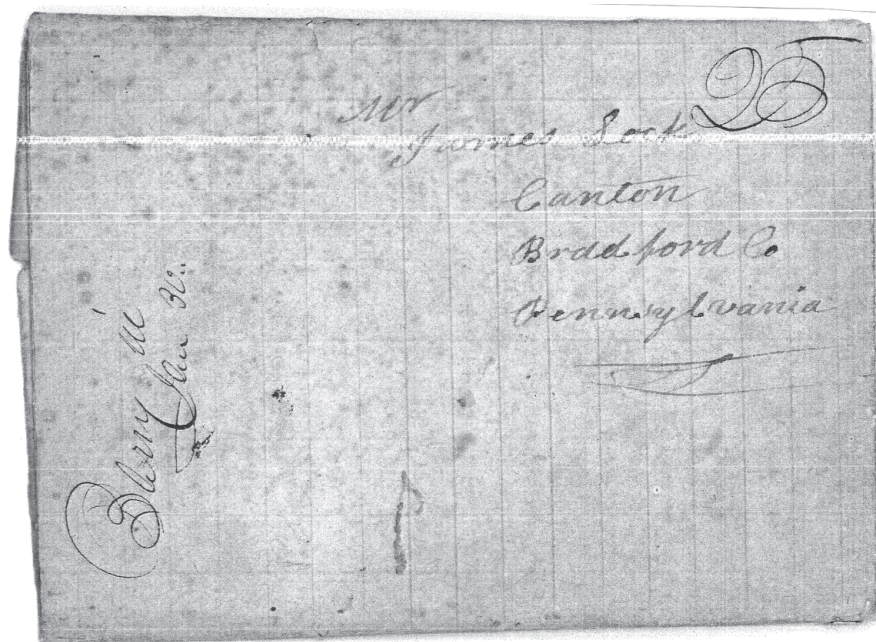 25
Mr
James Lock
Canton
Bradford Co
Pennsylvania
Perry Ill
Jan